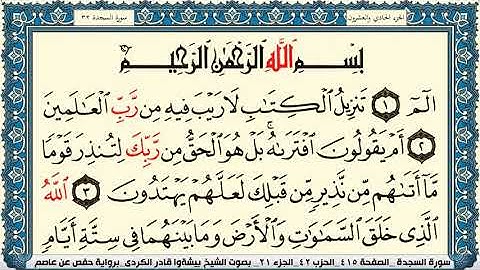 الجزء الحادي والعشرون
سورة السجدة ٣٢
بِسْمِ اللَّهِ الرَّحْمَٰنِ الرَّحِيمِ
الٓمٓ ١ تَنزِيلُ الْكِتَابِ لَا رَيْبَ فِيهِ مِن رَّبِّ الْعَالَمِينَ
٢ أَمْ يَقُولُونَ افْتَرَاهُ ۚ بَلْ هُوَ الْحَقُّ مِن رَّبِّكَ لِتُنذِرَ قَوْمًا
مَّا أَتَاهُم مِّن نَّذِيرٍ مِّن قَبْلِكَ لَعَلَّهُمْ يَهْتَدُونَ ٣ اللَّهُ
الَّذِي خَلَقَ السَّمَاوَاتِ وَالْأَرْضَ وَمَا بَيْنَهُمَا فِي سِتَّةِ أَيَّامٍ
سورة السجدة _ الصفحة ٤١٥ _ الحزب ٤٢ _ الجزء ٢١ _ بصوت الشيخ بيشةوا قادر الكردى _ برواية حفص عن عاصم